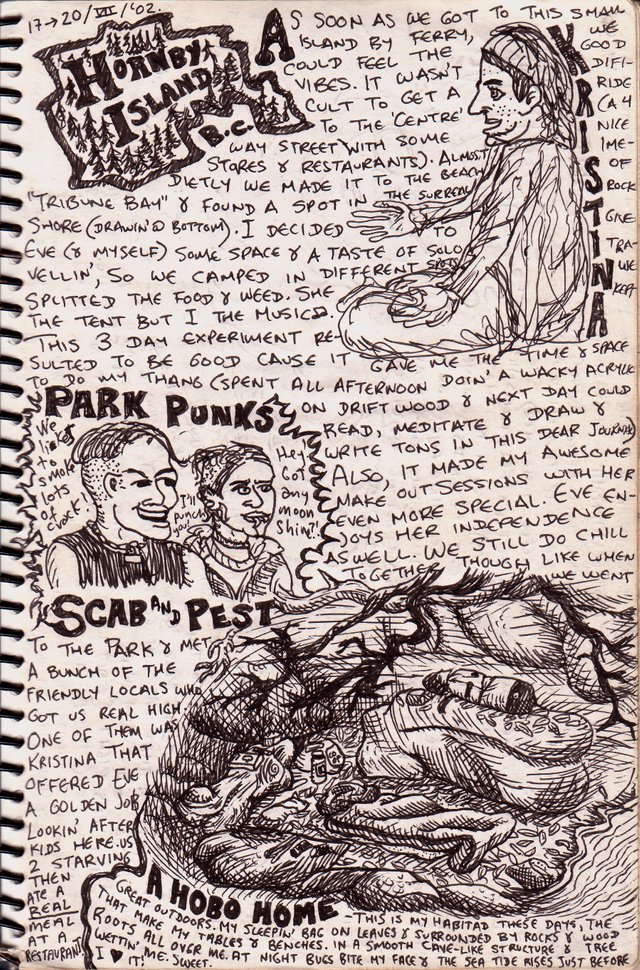 17→20/VII/'02.
HORNBY
ISLAND
B.C.
AS SOON AS WE GOT TO THIS SMALL
ISLAND BY FERRY, WE
COULD FEEL THE GOOD
VIBES. IT WASN'T DIFI-
CULT TO GET A RIDE
TO THE 'CENTRE' (A 4
WAY STREET WITH SOME NICE
STORES & RESTAURANTS). ALMOST IME-
DIETLY WE MADE IT TO THE BEACH OF
"TRIBUNE BAY" & FOUND A SPOT IN THE SURREAL ROCK
SHORE (DRAWIN' @ BOTTOM). I DECIDED TO GIVE
EVE (& MYSELF) SOME SPACE & A TASTE OF SOLO TRA-
VELLIN', SO WE CAMPED IN DIFFERENT SPOTS, WE
SPLITTED THE FOOD & WEED. SHE KEPT
THE TENT BUT I THE MUSICS.
THIS 3 DAY EXPERIMENT RE-
SULTED TO BE GOOD CAUSE IT GAVE ME THE TIME & SPACE
TO DO MY THANG (SPENT ALL AFTERNOON DOIN' A WACKY ACRYLIC
ON DRIFTWOOD & NEXT DAY COULD
READ, MEDITATE & DRAW &
WRITE TONS IN THIS DEAR JOURNAL)
ALSO, IT MADE MY AWESOME
MAKE OUT SESSIONS WITH HER
EVEN MORE SPECIAL. EVE EN-
JOYS HER INDEPENDENCE
AS WELL. WE STILL DO CHILL
TOGETHER THOUGH LIKE WHEN
WE WENT
KRISTINA
PARK PUNKS
We
like
to
smoke
lots
of
crack!
I'll
punch
you!
Hey
Got
any
moon
Shine?!
SCAB AND PEST
TO THE PARK & MET
A BUNCH OF THE
FRIENDLY LOCALS WHO
GOT US REAL HIGH.
ONE OF THEM WAS
KRISTINA THAT
OFFERED EVE
A GOLDEN JOB
LOOKIN' AFTER
KIDS HERE. US
2 STARVING
THEN
ATE A
REAL
MEAL
AT A
RESTAURANT
A HOBO HOME
-THIS IS MY HABITAD THESE DAYS, THE
GREAT OUTDOORS. MY SLEEPIN' BAG ON LEAVES & SURROUNDED BY ROCKS & WOOD
THAT MAKE MY TABLES & BENCHES. IN A SMOOTH CAVE-LIKE STRUCTURE & TREE
ROOTS ALL OVER ME. AT NIGHT BUGS BITE MY FACE & THE SEA TIDE RISES JUST BEFORE
WETTIN' ME. SWEET.
I ♥ IT!